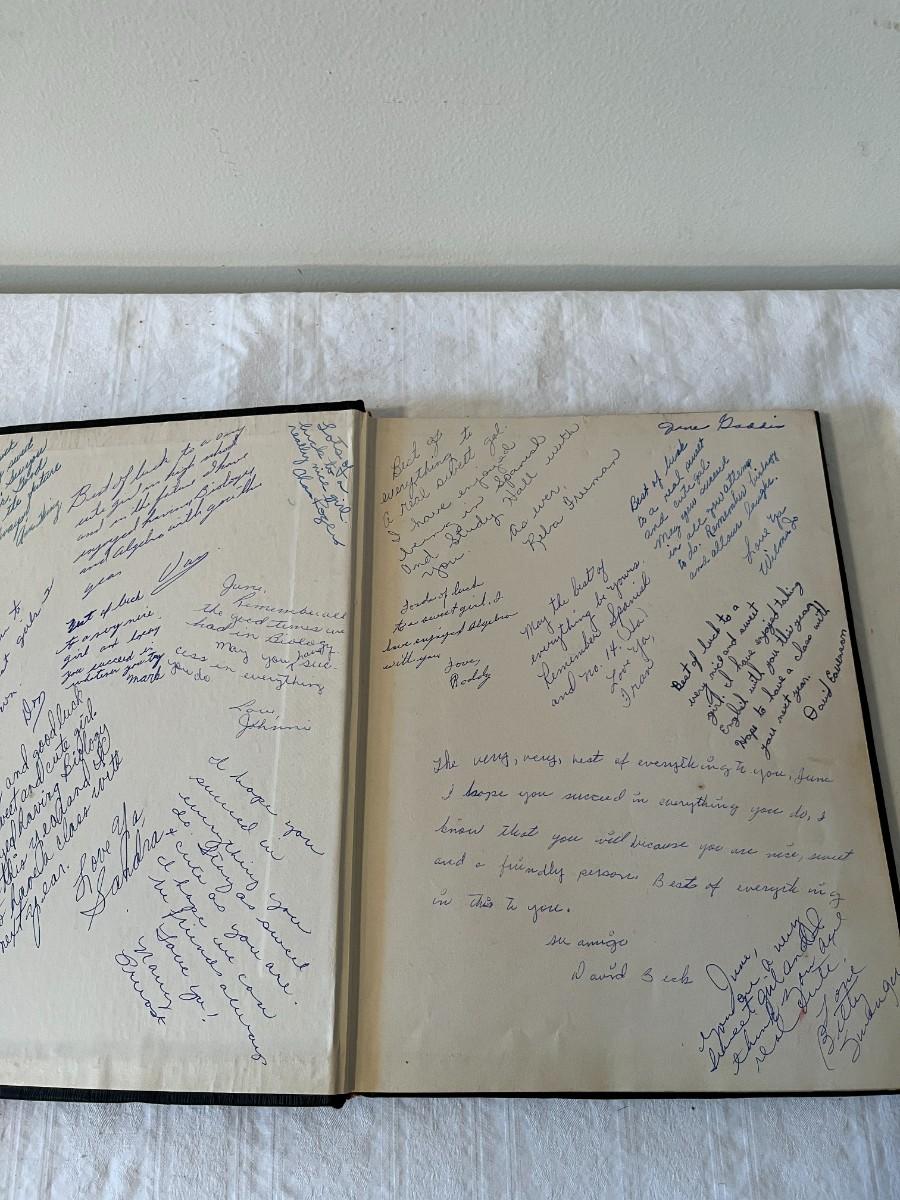 Best of luck to a very
cute girl in high school
and in the future. Have
enjoyed having Biology
and Algebra with you this
year.
Lots of
luck to a
really nice girl.
Best of luck
to a very nice
girl and boy
you succeed in
whatever you try
June,
Remember all
the good times we
had in Biology.
May you have suc-
cess in everything
you do
Love,
Johnnie
and good luck
sweet and cute girl.
having Biology
this year and
to have a class with
next year.
Love Ya,
Sandra
I hope you
succeed in
everything you
do. Stay as sweet
& cute as you are.
I hope we can
be friends always
Love ya!
Nancy
Best of
everything to
a real sweet gal.
I have enjoyed
being in Spanish
and Study Hall with
you.
As ever,
Reba Freeman
Loads of luck
to a sweet girl. I
have enjoyed Algebra
with you
Love,
Roddy
May the best of
everything be yours.
Remember Spanish
and no. 14. (Ha)
Love Ya,
Fran
June Gaddis
Best of luck
to a real sweet
and cute gal.
May you succeed
in all you attempt
to do. Remember biology
and all our laughs.
Love Ya
Wilma
Best of luck to a
very nice and sweet
girl. I have enjoyed taking
English with you this year.
Hope to have a class with
you next year.
David
The very, very, best of everything to you, June
I hope you succeed in everything you do, I
know that you will because you are nice, sweet
and a friendly person. Best of everything
in this to you.
su amigo
David Beck
June,
You're a very
sweet girl and I
think you are
real cute!
Love
Betty